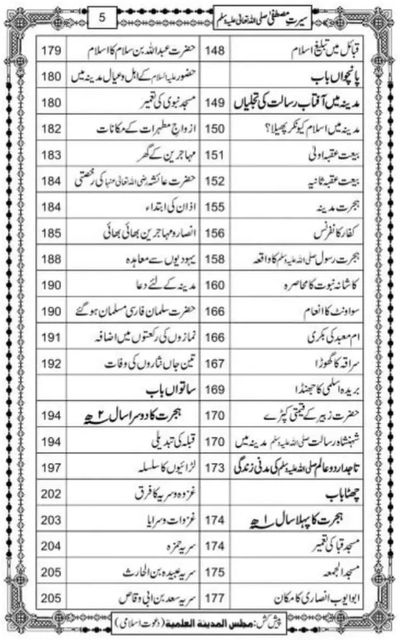 سیرتِ مصطفی صلی اللہ تعالیٰ علیہ وسلم
5
قبائل میں تبلیغِ اسلام 148
پانچواں باب
مدینہ میں آفتابِ رسالت کی تجلیاں 149
مدینہ میں اسلام کیونکر پھیلا؟ 150
بیعت عقبہ اولیٰ 151
بیعت عقبہ ثانیہ 152
ہجرت مدینہ 155
کفار کانفرنس 156
ہجرت رسول صلی اللہ علیہ وسلم کا واقعہ 158
کاشانہ نبوت کا محاصرہ 160
سو اونٹ کا انعام 166
ام معبد کی بکری 166
سراقہ کا گھوڑا 167
بریدہ اسلمی کا جھنڈا 169
حضرت زبیر کے قیمتی کپڑے 170
شہنشاہ رسالت صلی اللہ علیہ وسلم مدینہ میں 170
تاجدار دو عالم صلی اللہ علیہ وسلم کی مدنی زندگی 173
چھٹا باب
ہجرت کا پہلا سال ۱ھ 174
مسجد قبا کی تعمیر 174
مسجد الجمعہ 175
ابو ایوب انصاری کا مکان 177
حضرت عبداللہ بن سلام کا اسلام 179
حضور علیہ السلام کے اہل و عیال مدینہ میں 180
مسجد نبوی کی تعمیر 180
ازواجِ مطہرات کے مکانات 182
مہاجرین کے گھر 183
حضرت عائشہ رضی اللہ تعالیٰ عنہا کی رخصتی 184
اذان کی ابتداء 184
انصار و مہاجرین بھائی بھائی 185
یہودیوں سے معاہدہ 188
مدینہ کے لئے دعا 190
حضرت سلمان فارسی مسلمان ہو گئے 190
نمازوں کی رکعتوں میں اضافہ 191
تین جاں نثاروں کی وفات 192
ساتواں باب
ہجرت کا دوسرا سال ۲ھ 194
قبلہ کی تبدیلی 194
لڑائیوں کا سلسلہ 197
غزوہ و سریہ کا فرق 202
غزوات و سرایا 203
سریہ حمزہ 204
سریہ عبیدہ بن الحارث 205
سریہ سعد بن ابی وقاص 205
پیش کش: مجلس المدینۃ العلمیۃ (دعوتِ اسلامی)